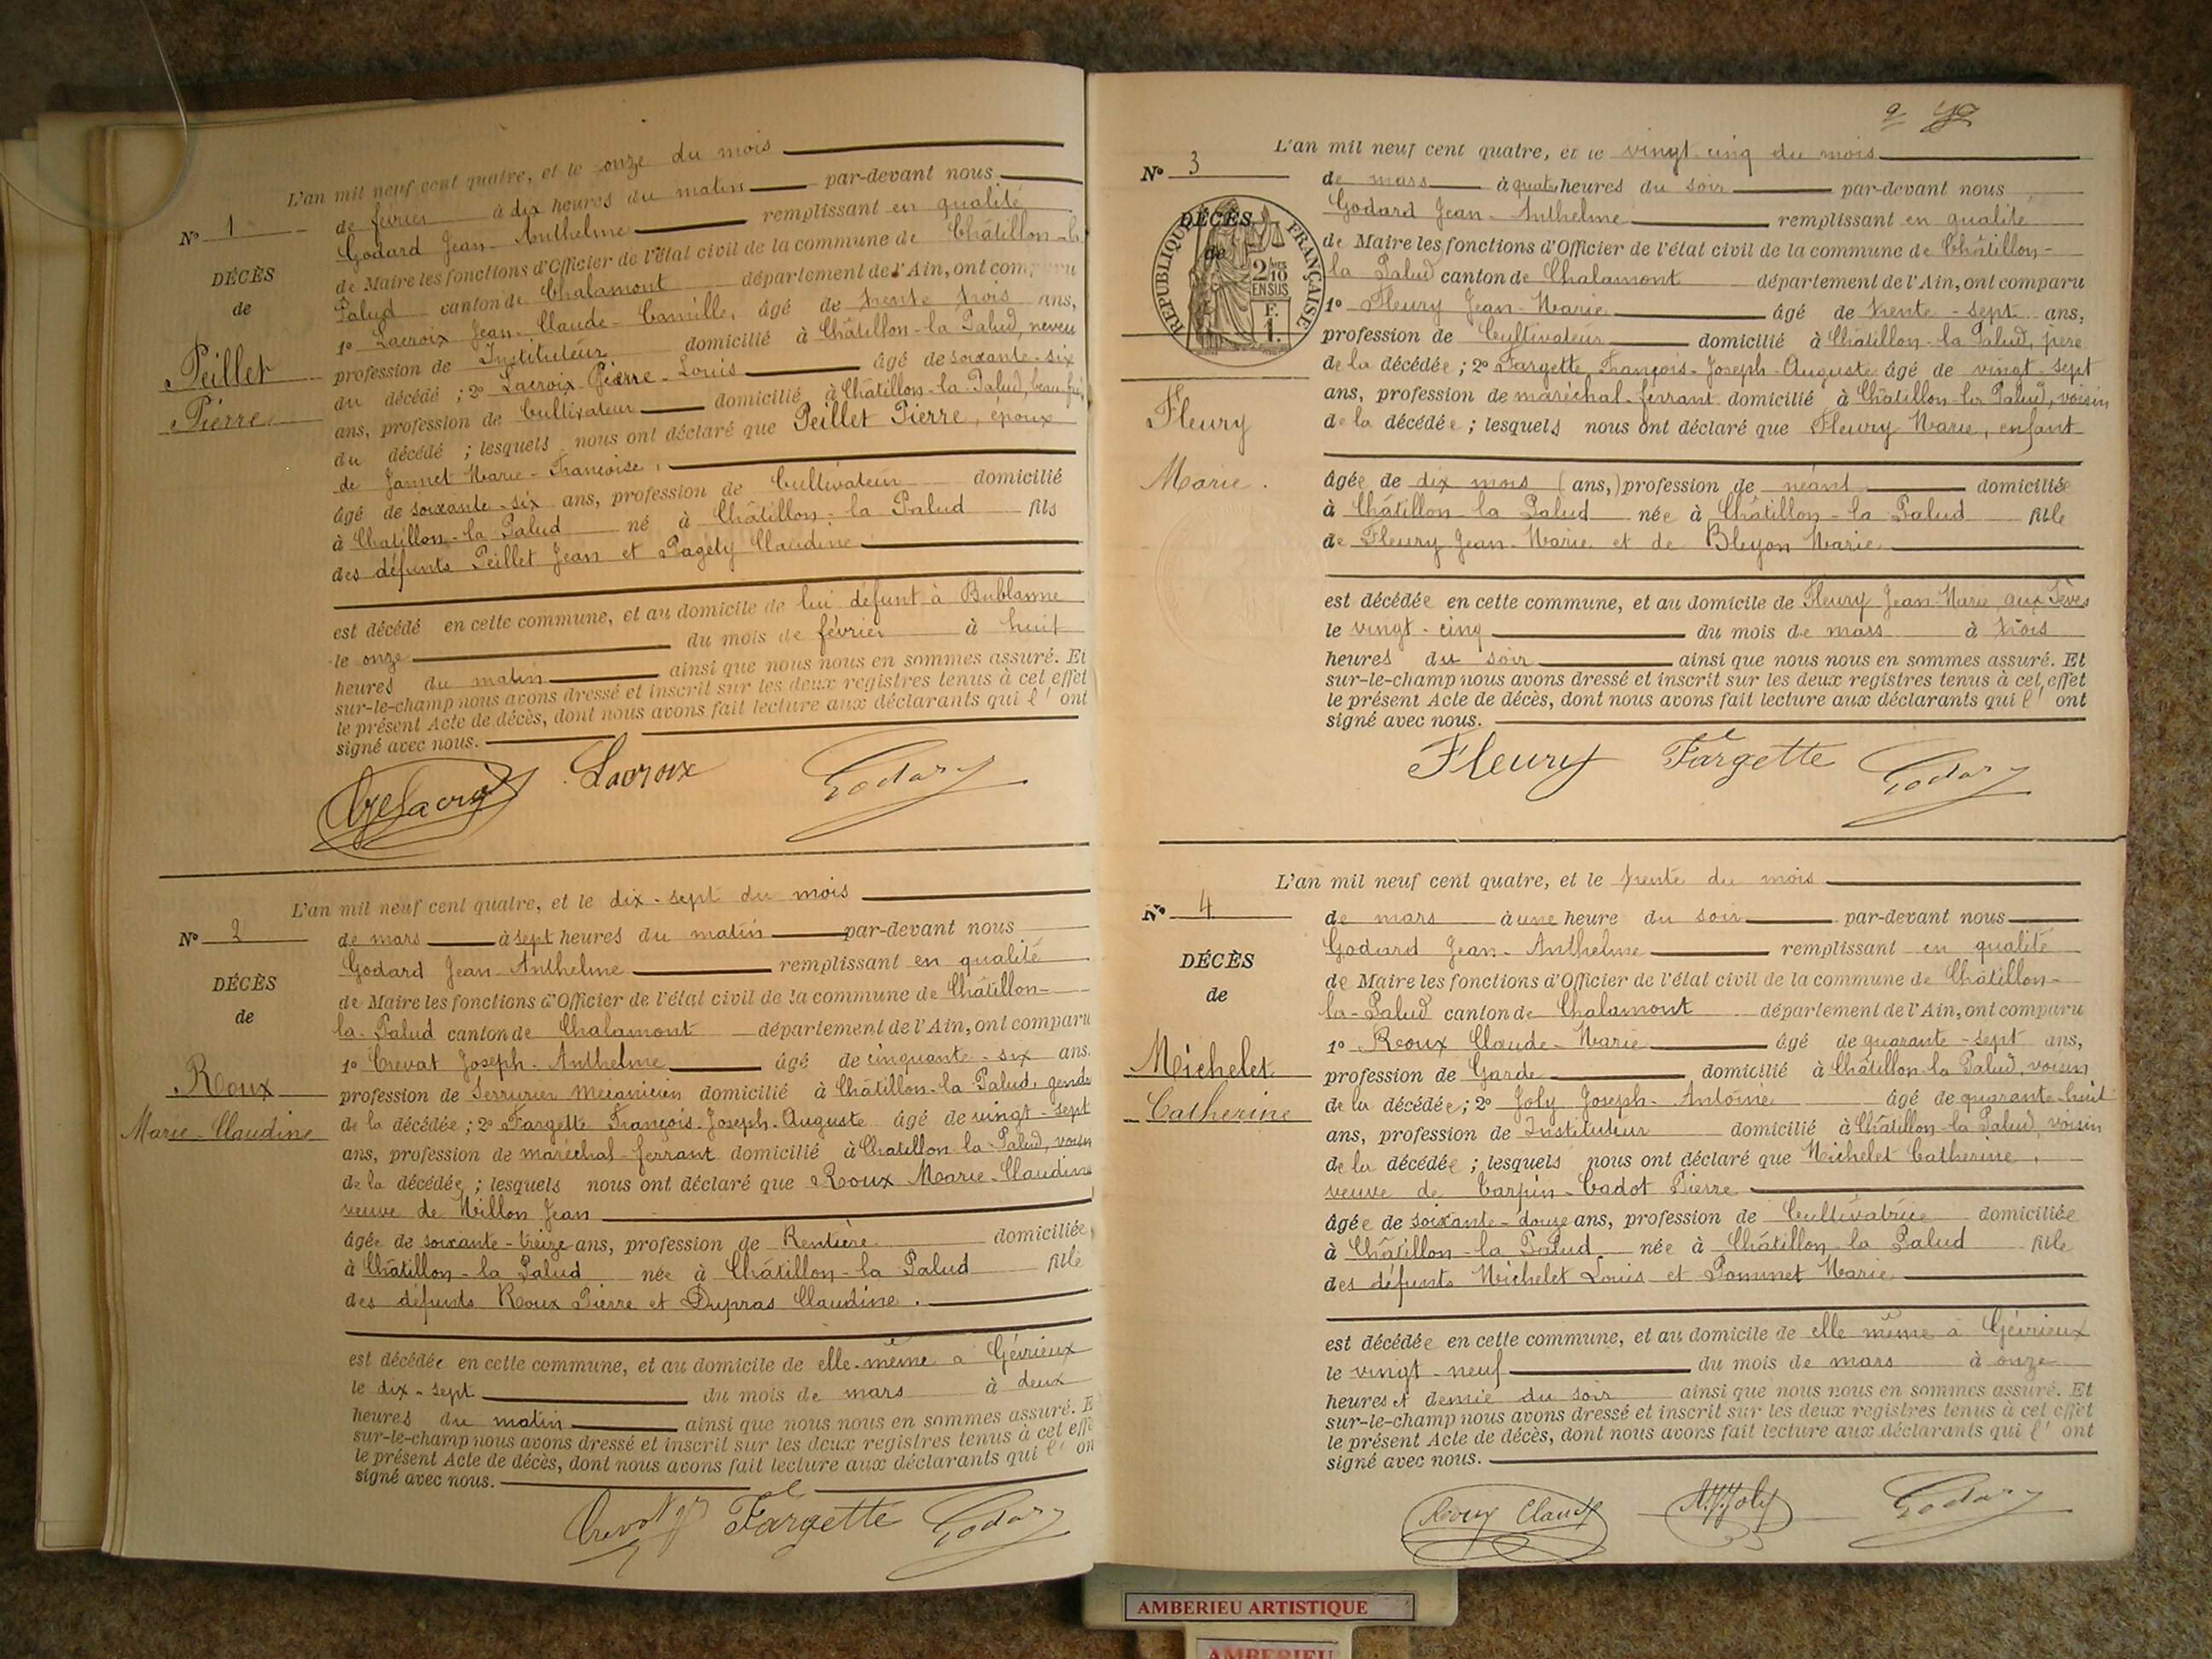 L'an mil neuf cent quatre, et le onze du mois
N° 1
de février à dix heures du matin par-devant nous
Godard Jean-Anthelme remplissant en qualité
de Maire les fonctions d'Officier de l'état civil de la commune de Châtillon-la
DÉCÈS
de
Peillet
Pierre
Palud canton de Chalamont département de l'Ain, ont comparu
1° Lacroix Jean-Claude-Camille, âgé de trente trois ans,
profession de Instituteur domicilié à Châtillon-la Palud, neveu
du décédé ; 2° Lacroix Pierre-Louis âgé de soixante-six
ans, profession de Cultivateur domicilié à Châtillon-la-Palud, beau frè
du décédé ; lesquels nous ont déclaré que Peillet Pierre, époux
de Jannet Marie-Françoise,
âgé de soixante-six ans, profession de Cultivateur domicilié
à Chatillon-la Palud né à Châtillon-la Palud fils
des défunts Peillet Jean et Pagety Claudine
est décédé en cette commune, et au domicile de lui défunt à Bublanne
le onze du mois de février à huit
heures du matin ainsi que nous nous en sommes assuré. Et
sur-le-champ nous avons dressé et inscrit sur les deux registres tenus à cet effet
le présent Acte de décès, dont nous avons fait lecture aux déclarants qui l' ont
signé avec nous.
Lacroix Godard
L'an mil neuf cent quatre, et le dix-sept du mois
N° 2
de mars à sept heures du matin par-devant nous
Godard Jean-Anthelme remplissant en qualité
DÉCÈS
de
Roux
Marie-Claudine
de Maire les fonctions d'Officier de l'état civil de la commune de Châtillon-
la-Palud canton de Chalamont département de l'Ain, ont comparu
1° Crevat Joseph-Anthelme âgé de cinquante-six ans.
profession de Serrurier mécanicien domicilié à Châtillon-la-Palud, gendre
de la décédée ; 2° Fargette François-Joseph-Auguste âgé de vingt-sept
ans, profession de maréchal-ferrant domicilié à Chatillon-la-Palud, voisin
de la décédée ; lesquels nous ont déclaré que Roux Marie-Claudine
veuve de Millon Jean
âgée de soixante-treize ans, profession de Rentière domiciliée
à Châtillon-la Palud née à Châtillon-la Palud fille
des défunts Roux Pierre et Dupras Claudine.
est décédée en cette commune, et au domicile de elle-même à Gévrieux
le dix-sept du mois de mars à deux
heures du matin ainsi que nous nous en sommes assuré. E
sur-le-champ nous avons dressé et inscrit sur les deux registres tenus à cet effe
le présent Acte de décès, dont nous avons fait lecture aux déclarants qui l' on
signé avec nous.
Crevat Fargette Godard
2
L'an mil neuf cent quatre, et le vingt-cinq du mois
N° 3
de mars à quatre heures du soir par-devant nous
Godard Jean-Anthelme remplissant en qualité
DÉCÈS
de
RÉPUBLIQUE FRANÇAISE
2/10 EN SUS
F. 1.
Fleury
Marie.
de Maire les fonctions d'Officier de l'état civil de la commune de Châtillon-
la Palud canton de Chalamont département de l'Ain, ont comparu
1° Fleury Jean-Marie âgé de trente-sept ans,
profession de Cultivateur domicilié à Châtillon-la Palud, père
de la décédée ; 2° Fargette François-Joseph-Auguste âgé de vingt-sept
ans, profession de maréchal-ferrant domicilié à Châtillon-la Palud, voisin
de la décédée ; lesquels nous ont déclaré que Fleury Marie, enfant
âgée de dix mois (ans,) profession de néant domiciliée
à Châtillon-la Palud née à Châtillon-la Palud fille
de Fleury Jean-Marie et de Bleyon Marie
est décédée en cette commune, et au domicile de Fleury Jean-Marie aux Fèves
le vingt-cinq du mois de mars à trois
heures du soir ainsi que nous nous en sommes assuré. Et
sur-le-champ nous avons dressé et inscrit sur les deux registres tenus à cet effet
le présent Acte de décès, dont nous avons fait lecture aux déclarants qui l' ont
signé avec nous.
Fleury Fargette Godard
L'an mil neuf cent quatre, et le trente du mois
N° 4
de mars à une heure du soir par-devant nous
Godard Jean-Anthelme remplissant en qualité
DÉCÈS
de
Michelet
Catherine
de Maire les fonctions d'Officier de l'état civil de la commune de Châtillon-
la-Palud canton de Chalamont département de l'Ain, ont comparu
1° Roux Claude-Marie âgé de quarante-sept ans,
profession de Garde domicilié à Châtillon-la Palud, voisin
de la décédée ; 2° Joly Joseph-Antoine âgé de quarante-huit
ans, profession de Instituteur domicilié à Châtillon-la Palud, voisin
de la décédée ; lesquels nous ont déclaré que Michelet Catherine,
veuve de Tarpin-Cadot Pierre
âgée de soixante-douze ans, profession de Cultivatrice domiciliée
à Châtillon-la Palud née à Châtillon-la Palud fille
des défunts Michelet Louis et Pommet Marie
est décédée en cette commune, et au domicile de elle même à Gévrieux
le vingt-neuf du mois de mars à onze
heures et demie du soir ainsi que nous nous en sommes assuré. Et
sur-le-champ nous avons dressé et inscrit sur les deux registres tenus à cet effet
le présent Acte de décès, dont nous avons fait lecture aux déclarants qui l' ont
signé avec nous.
Roux Claude Joly Godard
AMBERIEU ARTISTIQUE
AMBERIEU